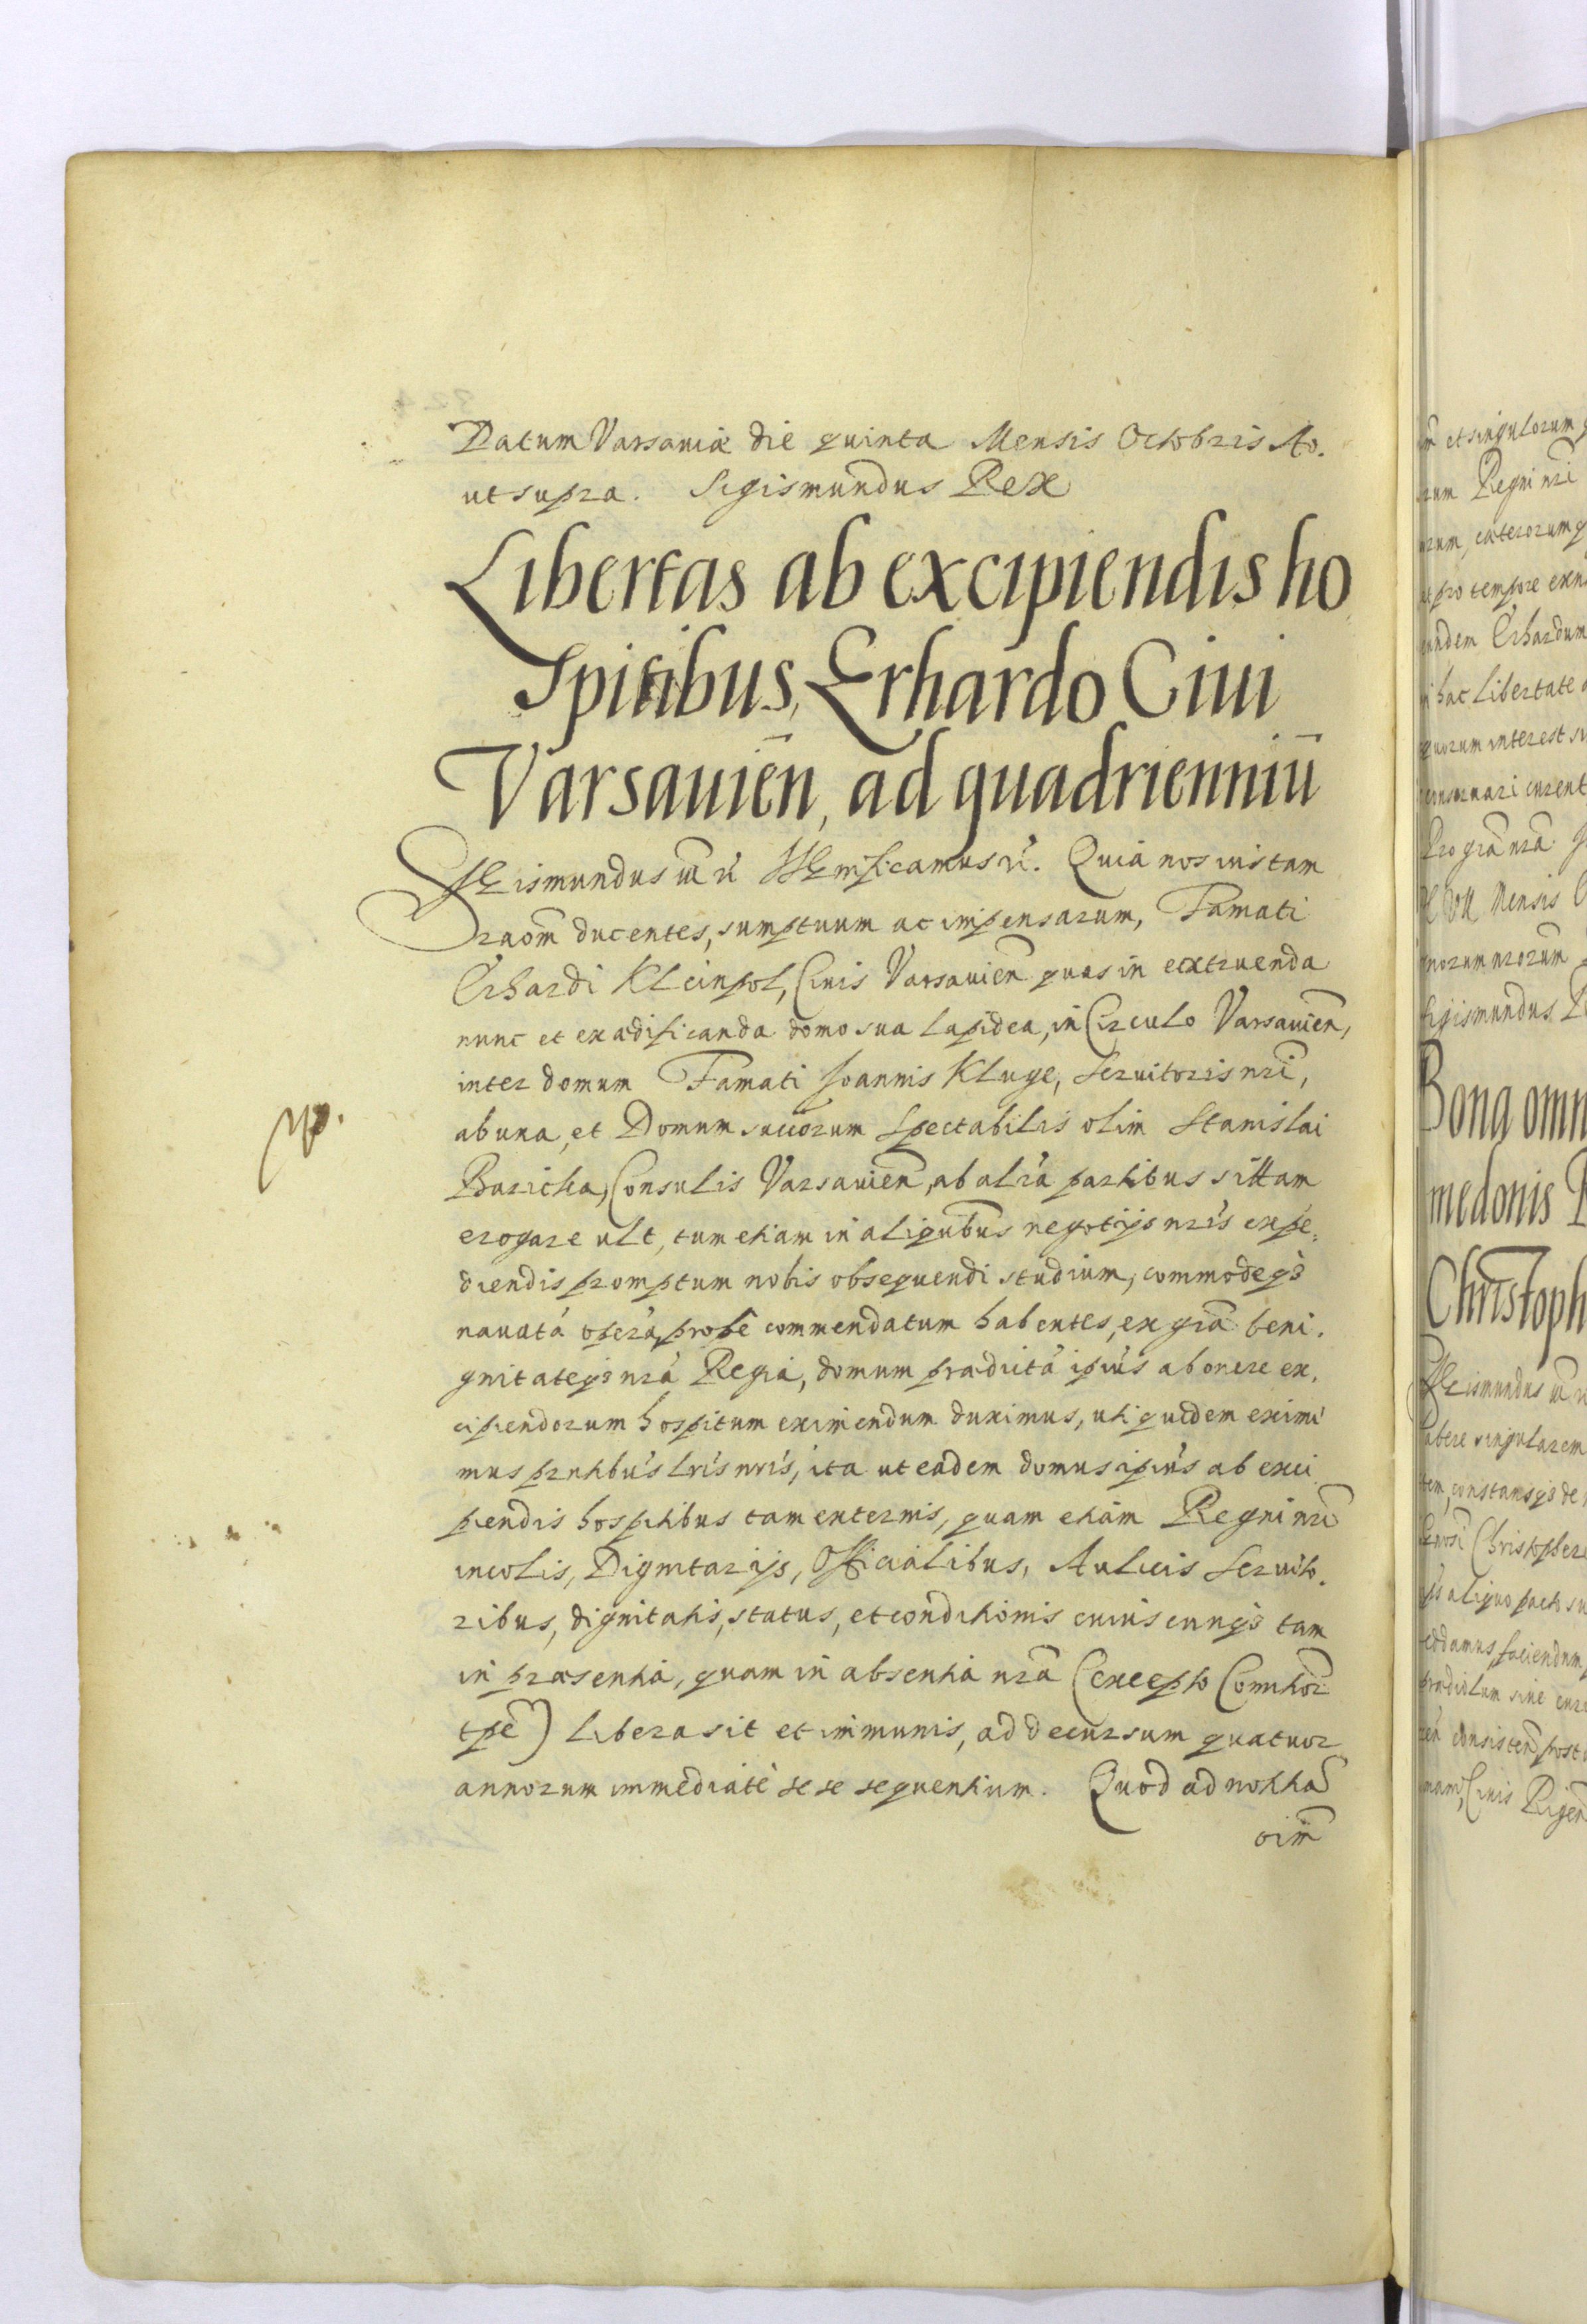 Datum Varsauiæ die quinta Mensis Octobris Ao.
ut supra. Sigismundus Rex
Libertas ab excipiendis ho
spitibus, Erhardo Ciui
Varsauień, ad quadrienniū
Sigismundus
Quia nos iustam
raōm ducentes, sumptuum ac impensarum, Famati
Erhardi Kleinpol, Ciuis Varsauień quas in extruenda
nunc et exædificanda domo sua lapidea, in Circulo Varsauień,
inter domum Famati Joannis Kluge, Seruitoris nr̄i,
ab una, et Domum Spectabilis olim Stanislai
Baricka, Consulis Varsauień, ab alia partibus sittam
erogare tum etiam in aliquibus negotijs nr̄is expe
diendis promptum nobis obsequendi studium, commodeqȝ
nauatá operá probè commendatum habentes, ex gr̄a beni
gnitateqȝ nr̄á Regiá, domum prædictā ipiūs ab onere ex
cipiendorum hospitum eximendum duximus, uti quidem eximi
mus pr̄ntibus lr̄is nr̄is, ita ut eadem domus ipiūs ab exci
piendis hospitibus tam externis, quam etiam Regni nr̄i
incolis, Dignitarijs, Officialibus, Aulicis Seruito
ribus, dignitatis, status, et conditionis cuiuscunqȝ tam
in præsentia, quam in absentia nr̄a (excepto Comitior̄
tp̄e) libera sit et immunis, ad decursum quatuor
annorum immediatè se se sequentium. Quod ad notitiā
oim̄
et singulorum
Regni nr̄i
cæterorumq
pro tempore
Erhardum
hac Libertate
quorum interest
curent
Pro gr̄a nr̄a
Mensis
Sigismundus
Bona omn
medonis
Christoph
Sigismundus
singularem
constansqȝ de
Christophe
aliquo pacto su
faciendum
sine
post
Ciuis Rigeń